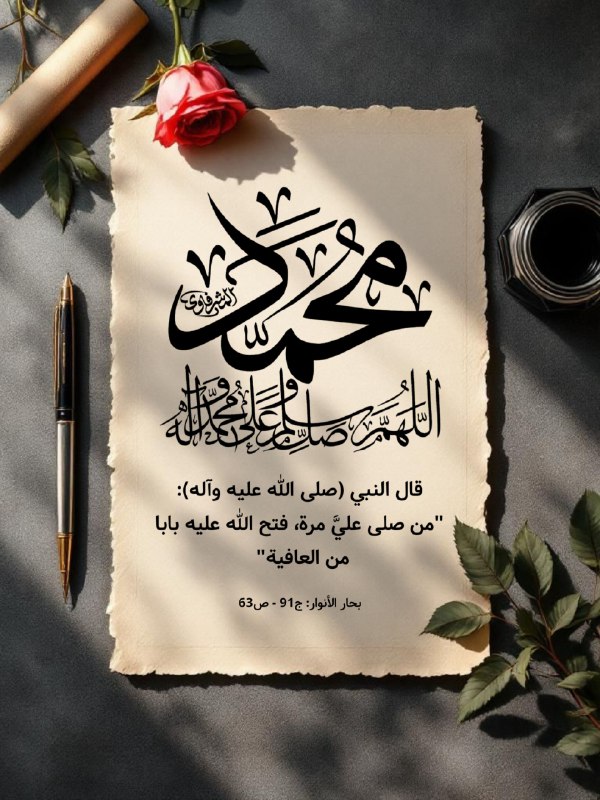 محمد
اللهم صل وسلم على محمد وآله
قال النبي (صلى الله عليه وآله):
"من صلى عليَّ مرة، فتح الله عليه بابا
من العافية"
بحار الأنوار: ج91 - ص63